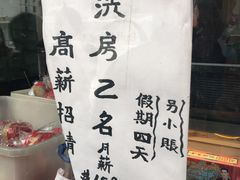 另小賬
假期四天
洗房乙名
月薪
高薪招請